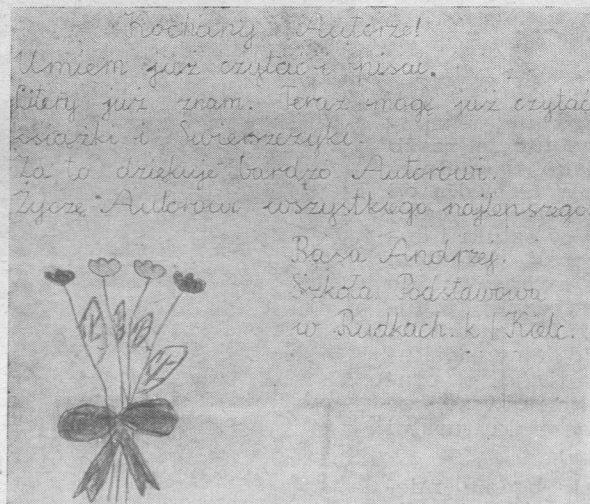 Kochany Autorze!
Umiem już czytać i pisać.
Litery już znam. Teraz mogę już czytać
książki i Świerszczyki.
Za to dziękuje bardzo Autorowi.
Życzę Autorowi wszystkiego najlepszego
Basa Andrzej.
Szkoła Podstawowa
w Rudkach. k / Kielc.